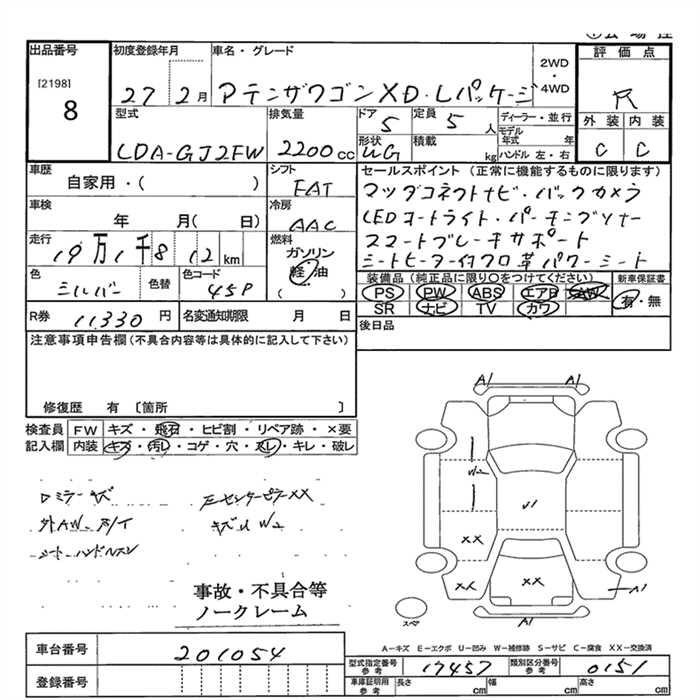 出品番号
[2198]
8
初度登録年月
27 2月
車名・グレード
アテンザワゴン XD・Lパッケージ
2WD
・
4WD
評価点
R
外装 内装
C C
型式
LDA-GJ2FW
排気量
2200 cc
ドア
5
定員
5 人
形状
WG
積載
kg
ディーラー・並行
モデル
年式 年
ハンドル 左・右
車歴
自家用・( )
シフト
FAT
車検
年 月( 日)
冷房
AAC
走行
19万1千812 km
燃料
ガソリン
軽油
( )
色
シルバー
色替
色コード
45P
R券 11,330 円
名変通知期限 月 日
セールスポイント(正常に機能するものに限ります)
マツダコネクトナビ・バックカメラ
LEDオートライト・パーキングソナー
スマートブレーキサポート
シートヒーター付クロ革パワーシート
装備品(純正品に限り○をつけてください)
新車保証書
PS PW ABS エアB AW
有・無
SR ナビ TV カワ
後日品
注意事項申告欄(不具合内容等は具体的に記入して下さい)
修復歴 有 〔箇所 〕
検査員 FW キズ・飛石・ヒビ割・リペア跡・×要
記入欄 内装 キズ・汚レ・コゲ・穴・スレ・キレ・破レ
ロミラーキズ
外AW
シートハンドル
センターピラーXX
キズU W2
事故・不具合等
ノークレーム
A1 A1
W2
U1
XX
XX XX
A1
A1
スペア
A-キズ E-エクボ U-凹み W-補修跡 S-サビ C-腐食 XX-交換済
車台番号 201054
登録番号
型式指定番号
参考
17457
類別区分番号
参考
0151
車庫証明用
参考
長さ cm
幅 cm
高さ cm